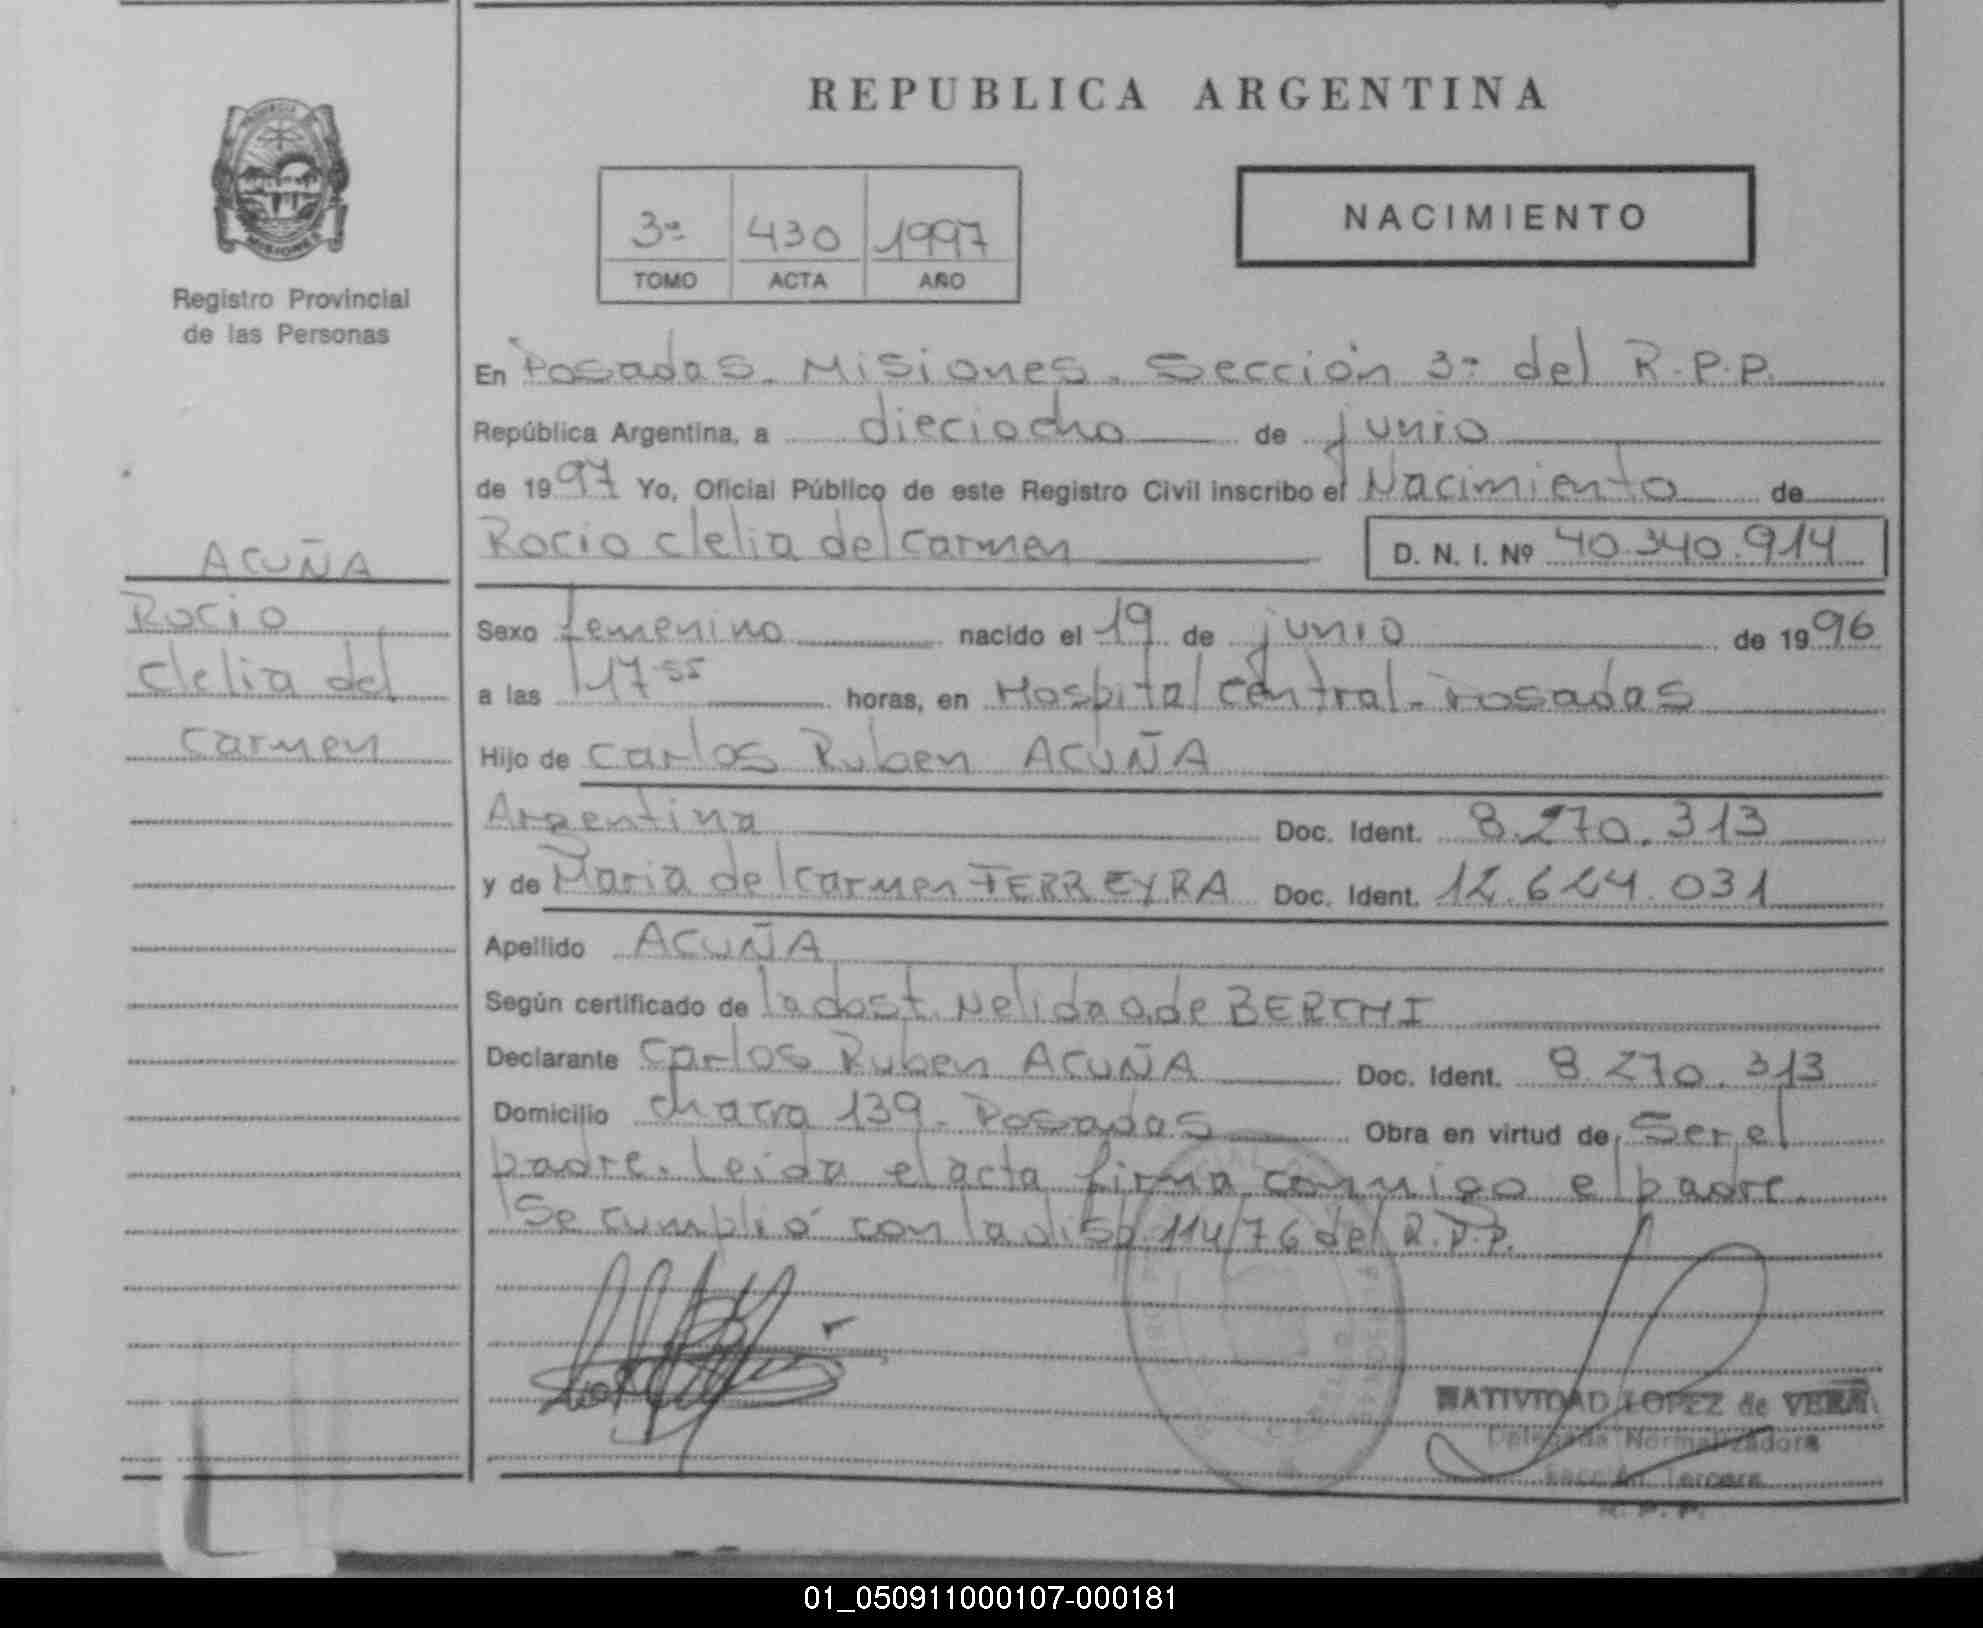 REPUBLICA ARGENTINA
MISIONES
Registro Provincial
de las Personas
3ª 430 1997
TOMO ACTA AÑO
NACIMIENTO
En Posadas. Misiones. Sección 3ª del R.P.P.
República Argentina, a dieciocho de junio
de 1997 Yo, Oficial Público de este Registro Civil inscribo el Nacimiento de
Rocio Clelia del Carmen D. N. I. Nº 40.340.914
ACUÑA
Rocio
Clelia del
Carmen
Sexo femenino nacido el 19 de junio de 1996
a las 17 55 horas, en Hospital Central. Posadas
Hijo de Carlos Ruben ACUÑA
Argentina Doc. Ident. 8.270.313
y de Maria del Carmen FERREYRA Doc. Ident. 12.624.031
Apellido ACUÑA
Según certificado de la dost. Nelida A. de BERCHI
Declarante Carlos Ruben ACUÑA Doc. Ident. 8.270.313
Domicilio chacra 139. Posadas Obra en virtud de ser el
padre. Leida el acta firma conmigo el padre.
Se cumplió con la disp. 114/76 del R.P.P.
NATIVIDAD LOPEZ de VERA
Delegada Normalizadora
Sección Tercera
R. P. P.
01_050911000107-000181